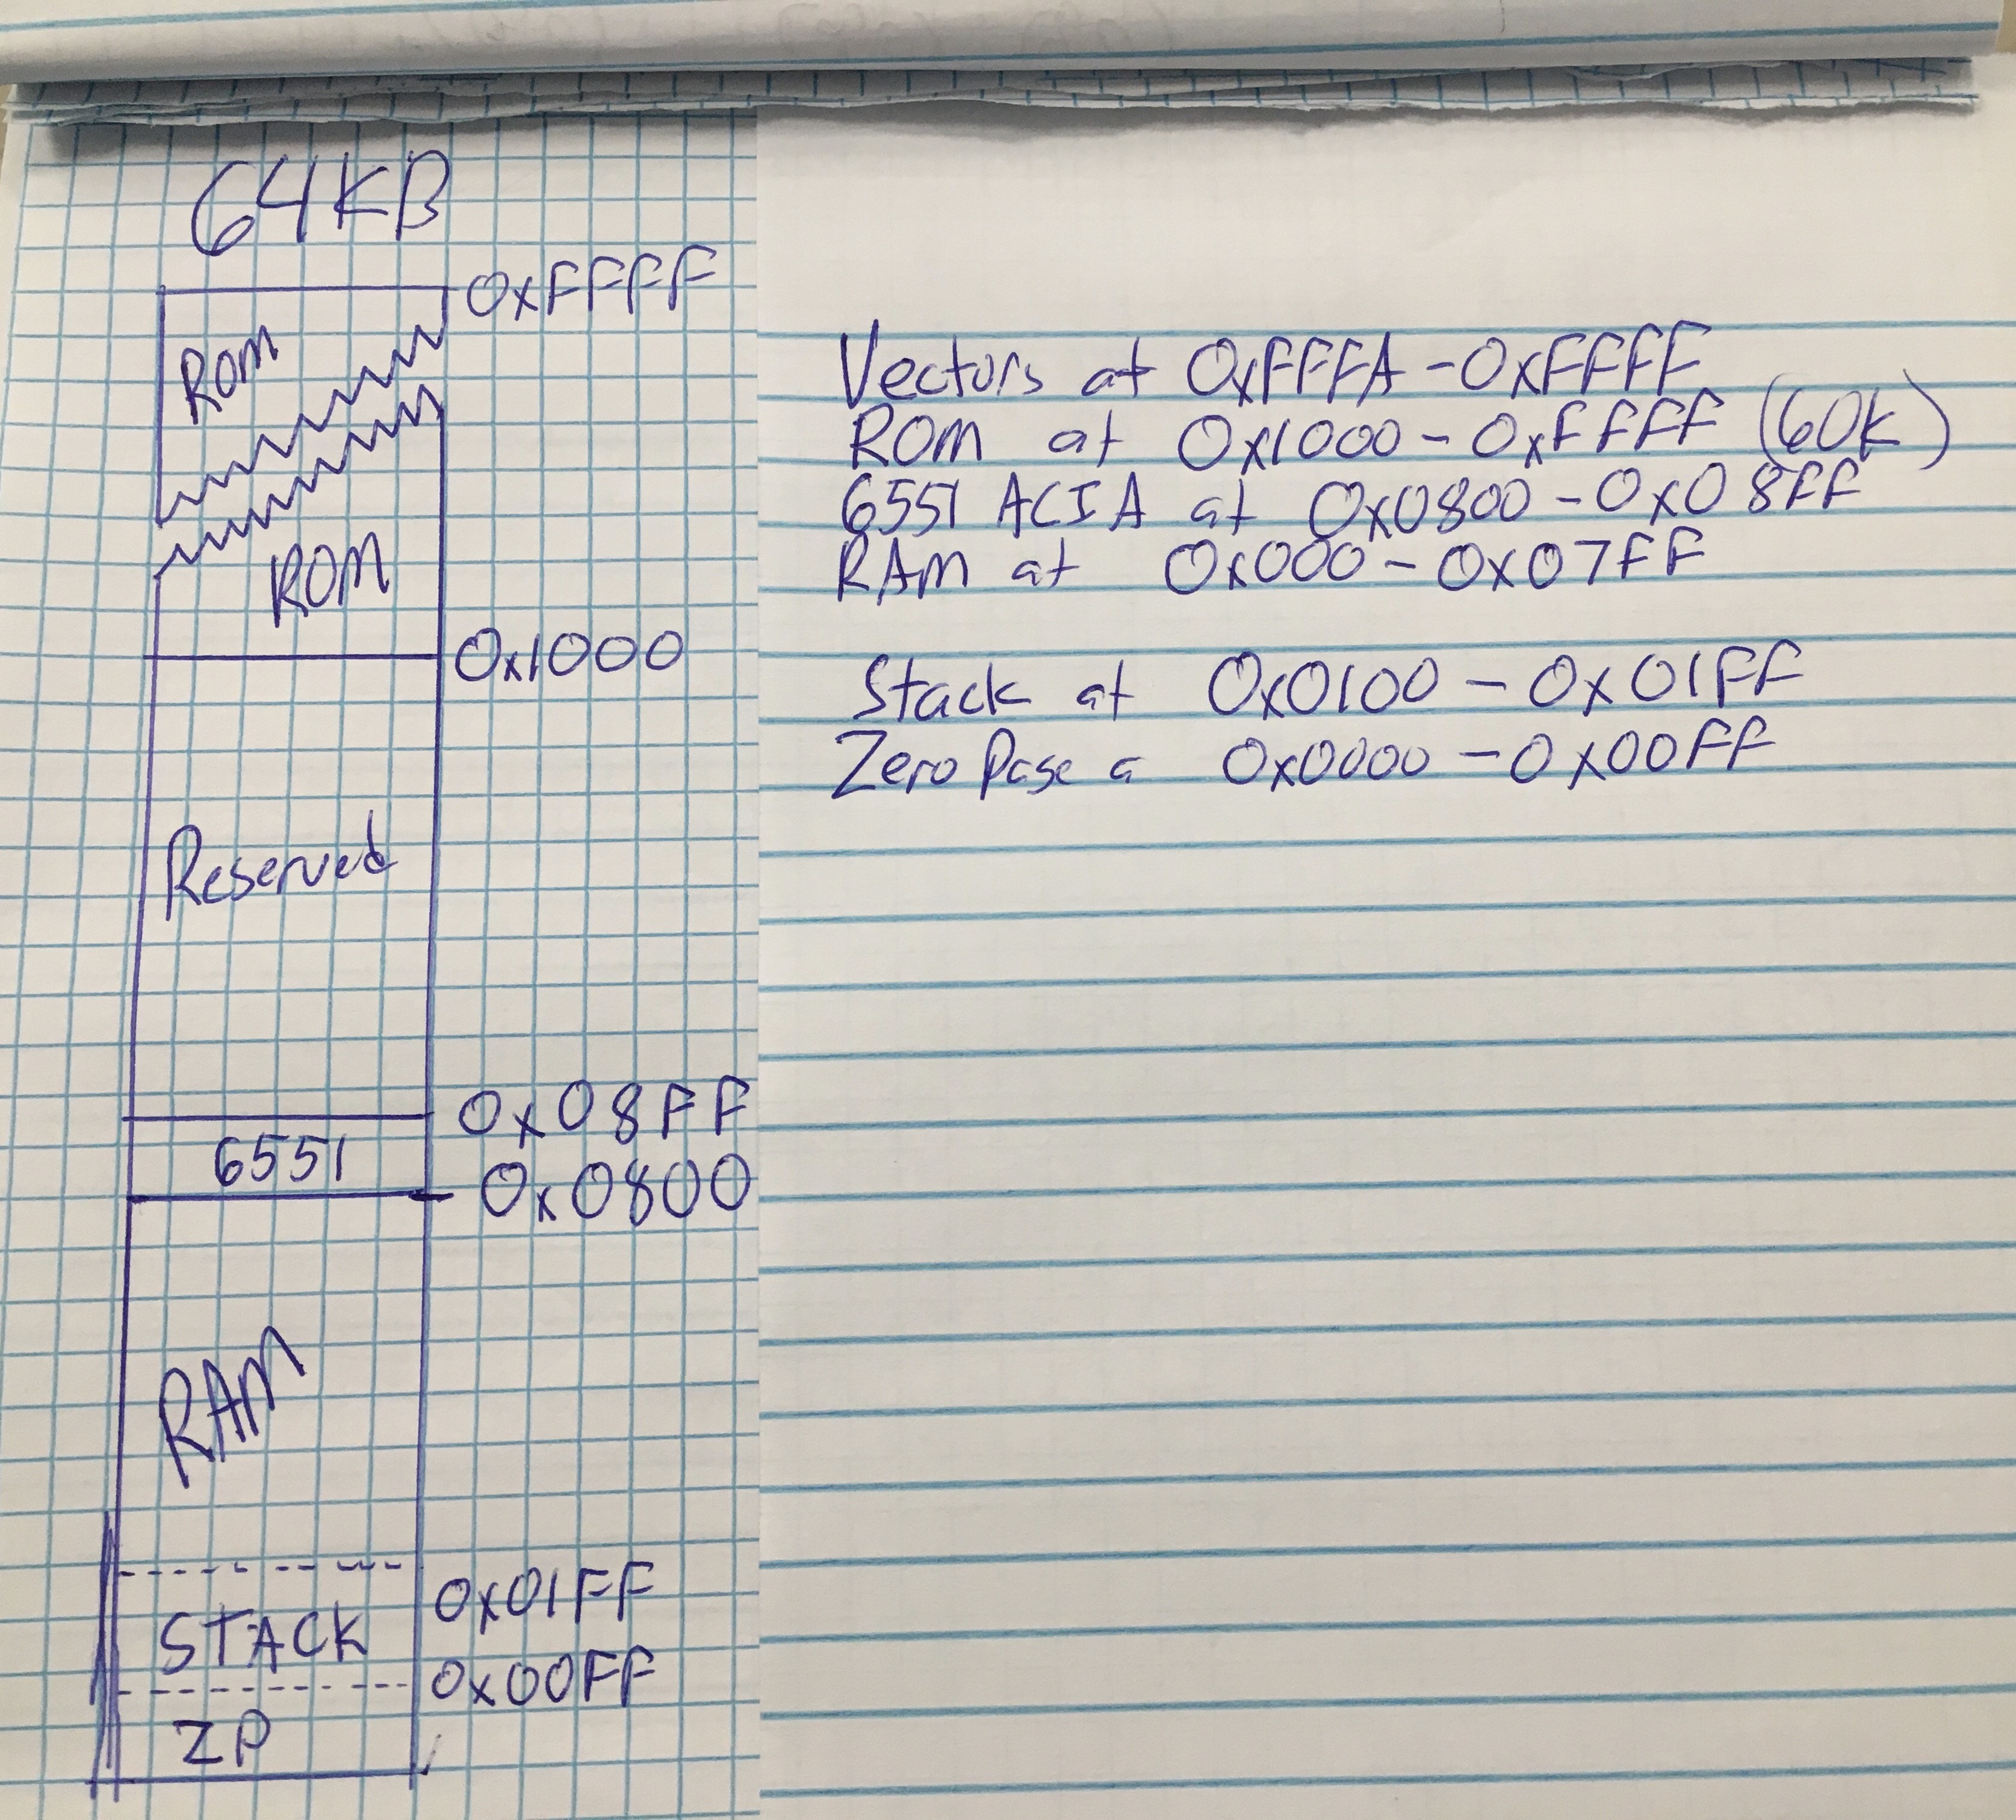 64KB
0xFFFF
Rom
ROM
0x1000
Reserved
0x08FF
6551
0x0800
RAM
0x01FF
STACK
0x00FF
ZP
Vectors at 0xFFFA - 0xFFFF
ROM at 0x1000 - 0xFFFF (60K)
6551 ACIA at 0x0800 - 0x08FF
RAM at 0x000 - 0x07FF
Stack at 0x0100 - 0x01FF
Zero Page a 0x0000 - 0x00FF